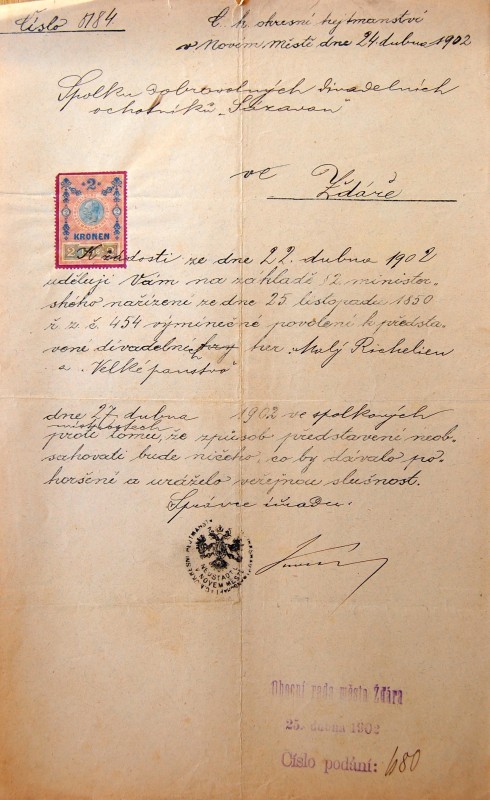 Číslo 8184
C. k. okresní hejtmanství
v Novém Městě dne 24. dubna 1902
Spolku dobrovolných divadelních
ochotníků „Sázavan“
ve Žďáře
2
KRONEN
K žádosti ze dne 22. dubna 1902
uděluji Vám na základě § 2. minister-
ského nařízení ze dne 25. listopadu 1850
ř. z. č. 454 výminečné povolení k předsta-
vení divadelních her „Malý Richelieu
a „Velké panstvo“
dne 27. dubna 1902 ve spolkových
místnostech
proti tomu, že způsob představení neob-
sahovati bude ničeho, co by dávalo po-
horšení a uráželo veřejnou slušnost.
Správce úřadu:
NEUSTADTL
V NOVÉM MĚSTĚ
Obecní rada města Žďára
25. dubna 1902
Číslo podání: 680